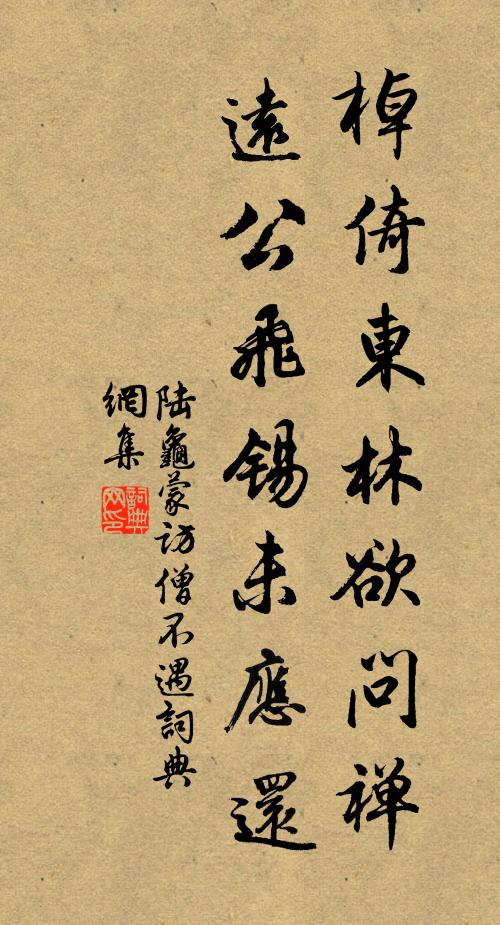 棹倚東林欲問禅
遠公飛錫未應還
陆龜蒙访僧不遇詞典
網集
詞典
网印